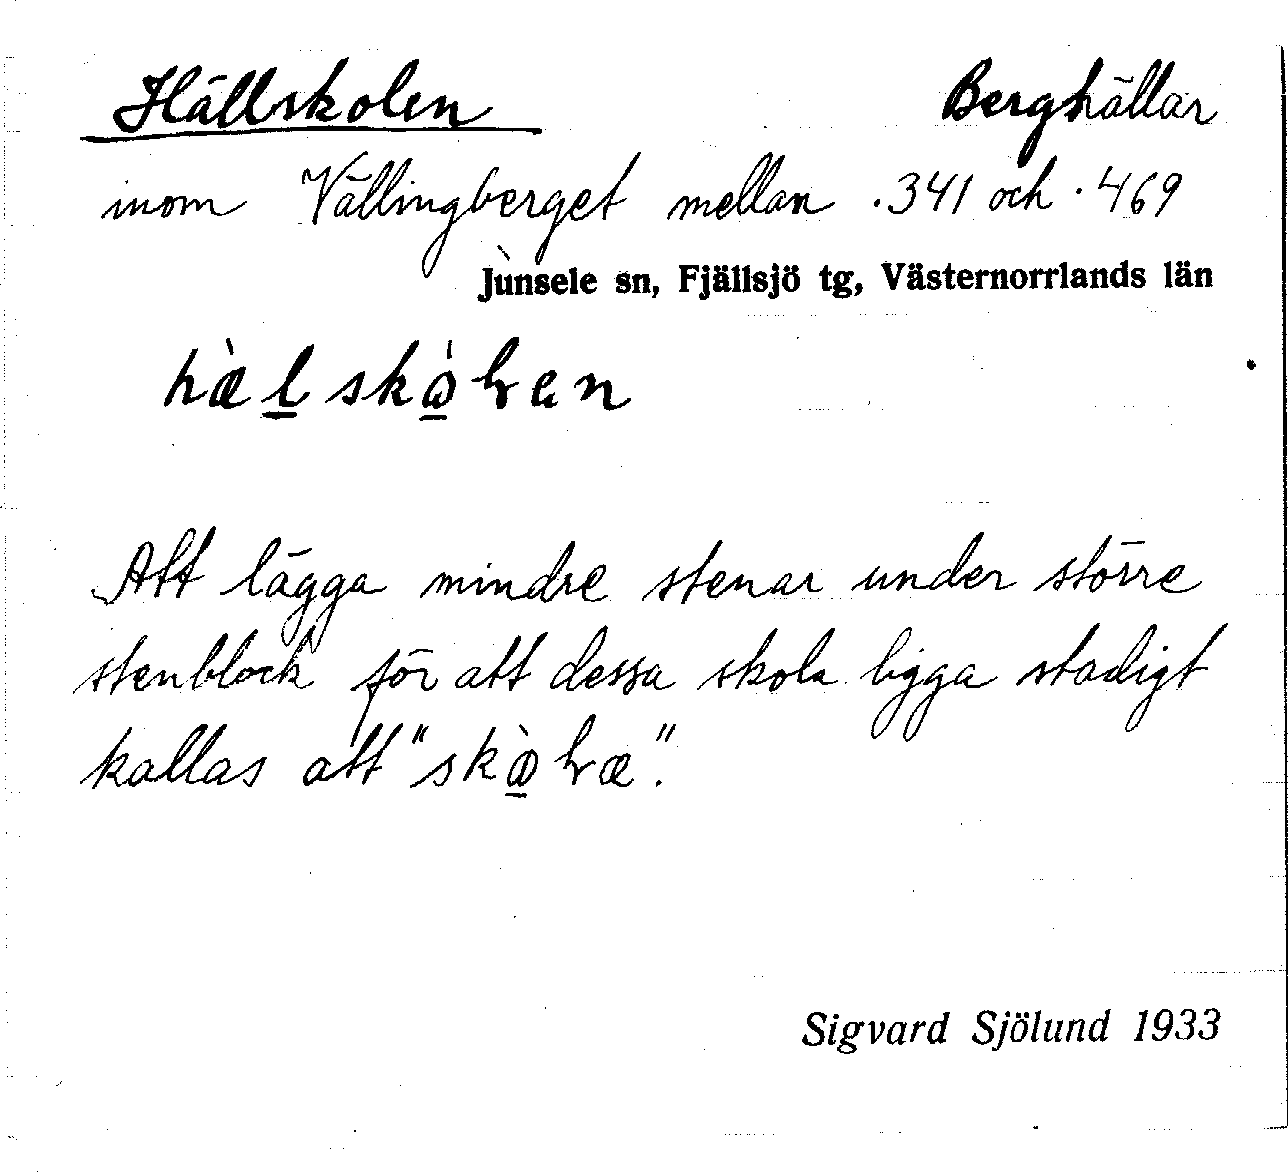 Hällskolen Berghällar
inom Vällingberget mellan .341 och .469
Junsele sn, Fjällsjö tg, Västernorrlands län
Att lägga mindre stenar under större
stenblock för att dessa skola ligga stadigt
kallas att
Sigvard Sjölund 1933